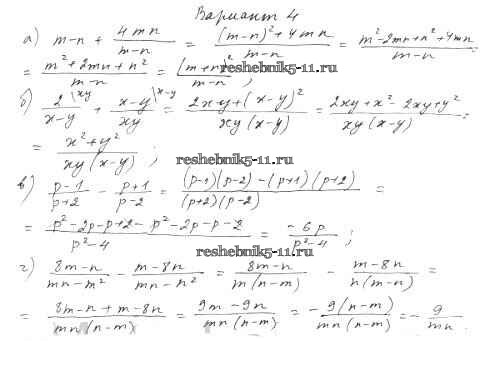 Вариант 4
а) m-n + 4mn/(m-n) = ((m-n)²+4mn)/(m-n) = (m²-2mn+n²+4mn)/(m-n) =
= (m²+2mn+n²)/(m-n) = (m+n)²/(m-n) ;
reshebnik5-11.ru
б) 2/(x-y) \xy + (x-y)/xy \x-y = (2xy+(x-y)²)/(xy(x-y)) = (2xy+x²-2xy+y²)/(xy(x-y)) =
= (x²+y²)/(xy(x-y)) ;
reshebnik5-11.ru
в) (p-1)/(p+2) - (p+1)/(p-2) = ((p-1)(p-2)-(p+1)(p+2))/((p+2)(p-2)) =
= (p²-2p-p+2-p²-2p-p-2)/(p²-4) = -6p/(p²-4) ;
reshebnik5-11.ru
г) (8m-n)/(mn-m²) - (m-8n)/(mn-n²) = (8m-n)/(m(n-m)) - (m-8n)/(n(m-n)) =
= (8m-n+m-8n)/(mn(n-m)) = (9m-9n)/(mn(n-m)) = -9(n-m)/(mn(n-m)) = -9/mn.